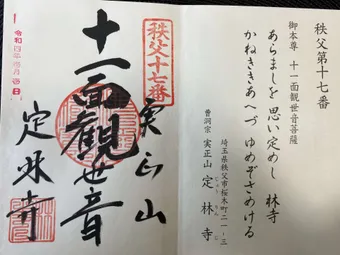 秩父第十七番
御本尊 十一面観世音菩薩
あらましを 思い定めし 林寺
かねききあへづ ゆめぞさめける
埼玉県秩父市桜木町二一-三
曹洞宗 実正山 定林寺
じょうりんじ
秩父十七番
実正山
十一面観世音
定林寺
令和四年 月 日